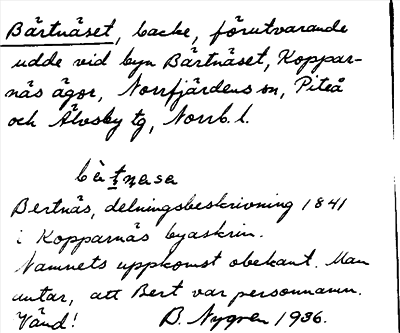 Bärtnäset, backe, förutvarande
udde vid byn Bärtnäset, Koppar-
näs ägor, Norrfjärdens sn, Piteå
och Älvsby tg, Norrb. l.
Bertnäs, delningsbeskrivning 1841
i Kopparnäs byaskrin.
Namnets uppkomst obekant. Man
antar, att Bert var personnamn.
Vänd! D. Nygren 1936.